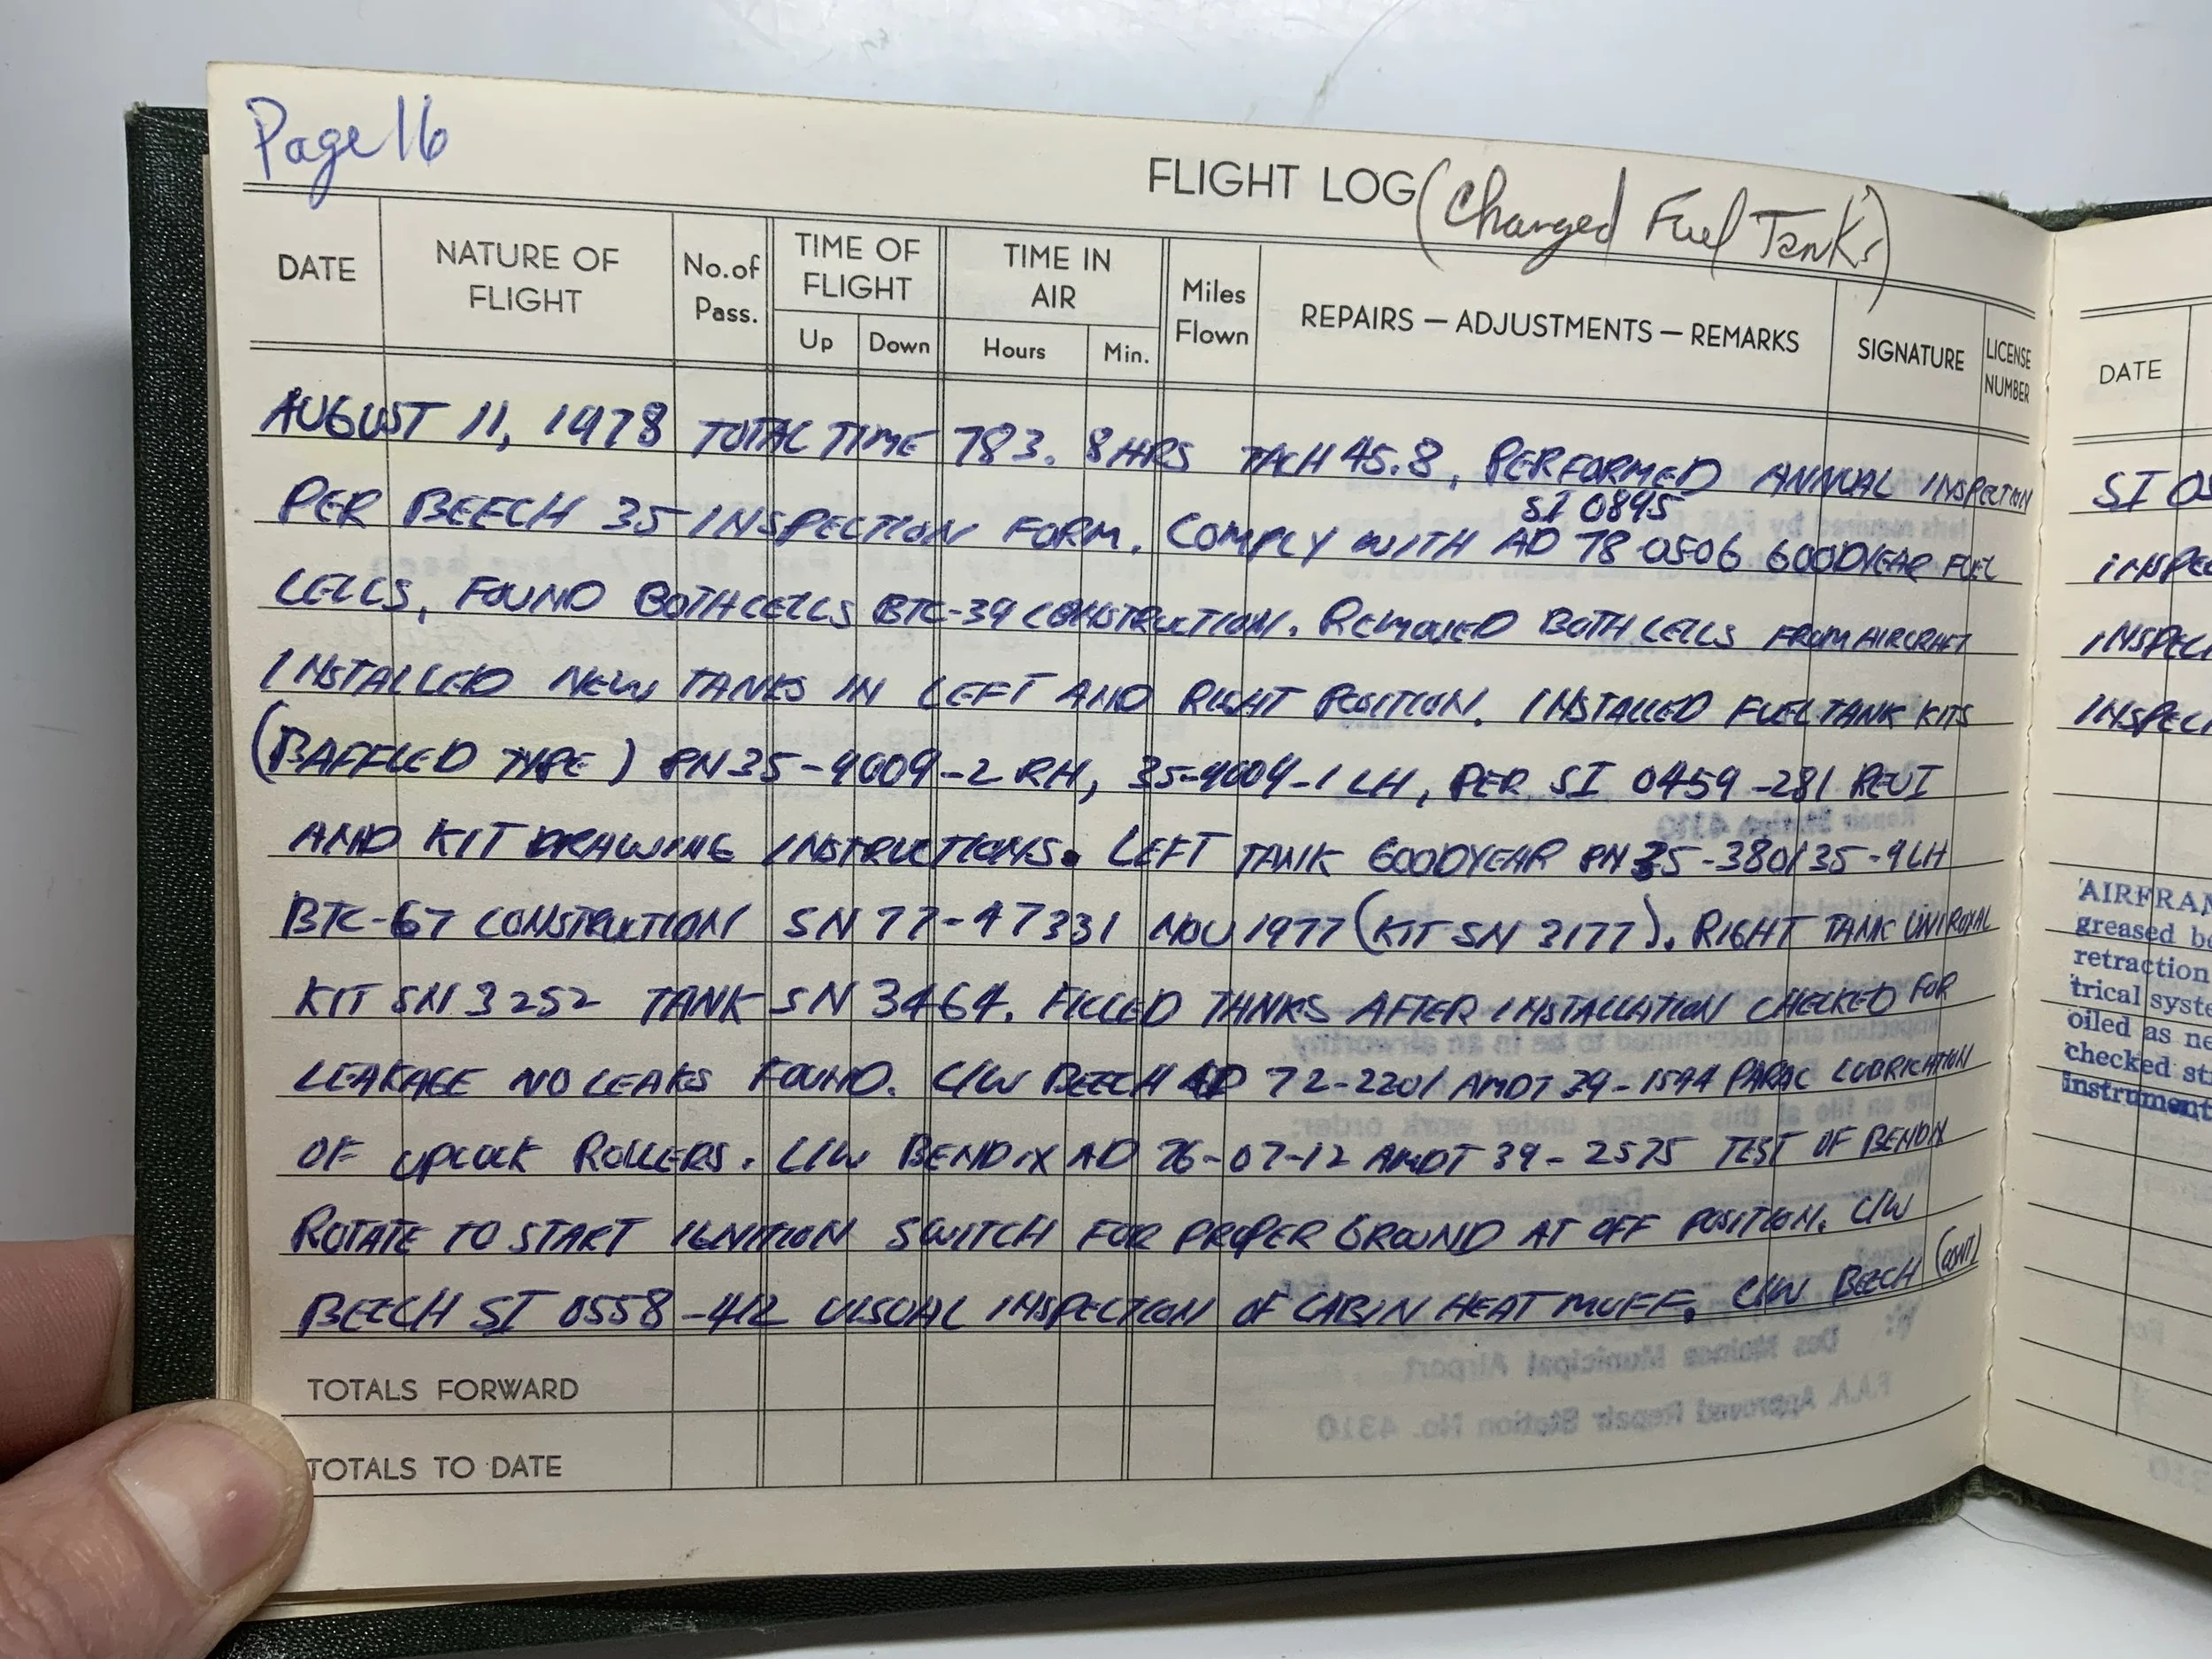 Page 16
FLIGHT LOG (Changed Fuel Tanks)
DATE NATURE OF FLIGHT No. of Pass. TIME OF FLIGHT Up Down TIME IN AIR Hours Min. Miles Flown REPAIRS — ADJUSTMENTS — REMARKS SIGNATURE LICENSE NUMBER
AUGUST 11, 1978 TOTAL TIME 783.8 HRS TACH 45.8, PERFORMED ANNUAL INSPECTION
SI 0895
PER BEECH 35 INSPECTION FORM. COMPLY WITH AD 78 0506 GOODYEAR FUEL
CELLS, FOUND BOTH CELLS BTC-39 CONSTRUCTION. REMOVED BOTH CELLS FROM AIRCRAFT
INSTALLED NEW TANKS IN LEFT AND RIGHT POSITION. INSTALLED FUEL TANK KITS
(BAFFLED TYPE) PN 35-9009-2 RH, 35-9009-1 LH, PER SI 0459-281 REV I
AND KIT DRAWING INSTRUCTIONS. LEFT TANK GOODYEAR PN 35-380135-9 LH
BTC-67 CONSTRUCTION SN 77-47331 NOV 1977 (KIT SN 3177). RIGHT TANK UNIROYAL
KIT SN 3252 TANK SN 3464. FILLED TANKS AFTER INSTALLATION CHECKED FOR
LEAKAGE NO LEAKS FOUND. C/W BEECH AD 72-2201 AMDT 39-1544 LUBRICATION
OF UPLOCK ROLLERS. C/W BENDIX AD 76-07-12 AMDT 39-2575 TEST OF BENDIX
ROTATE TO START IGNITION SWITCH FOR PROPER GROUND AT OFF POSITION. C/W
BEECH SI 0558-412 VISUAL INSPECTION OF CABIN HEAT MUFF, C/W BEECH (CONT)
TOTALS FORWARD
TOTALS TO DATE
DATE
SI
AIRFRAM
greased
retraction
trical syste
oiled as ne
checked st
instrument